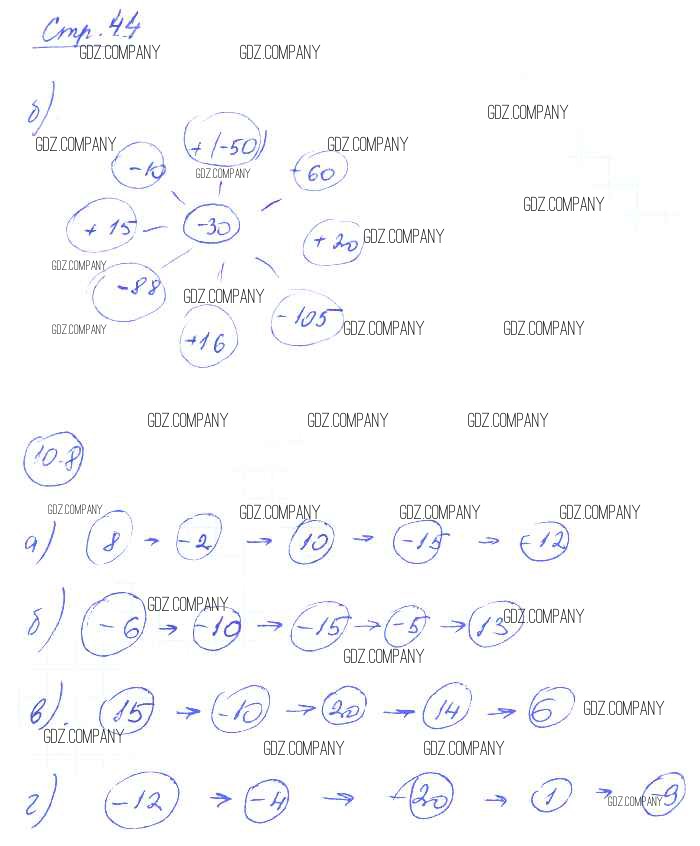 Стр. 44
GDZ.COMPANY GDZ.COMPANY
б)
GDZ.COMPANY
GDZ.COMPANY + (-50) GDZ.COMPANY
-10 GDZ.COMPANY + 60
GDZ.COMPANY
+ 15 -30
+ 20 GDZ.COMPANY
GDZ.COMPANY
-88 GDZ.COMPANY
GDZ.COMPANY +16 - 105 GDZ.COMPANY GDZ.COMPANY
GDZ.COMPANY GDZ.COMPANY GDZ.COMPANY
10.8
GDZ.COMPANY GDZ.COMPANY GDZ.COMPANY GDZ.COMPANY
а) 8 → -2 → 10 → -15 → -12
GDZ.COMPANY GDZ.COMPANY
б) -6 → -10 → -15 → -5 → 13
GDZ.COMPANY
в). 15 → -10 → 20 → 14 → 6 GDZ.COMPANY
GDZ.COMPANY GDZ.COMPANY GDZ.COMPANY
г) -12 → -4 → -20 → 1 → -9
GDZ.COMPANY